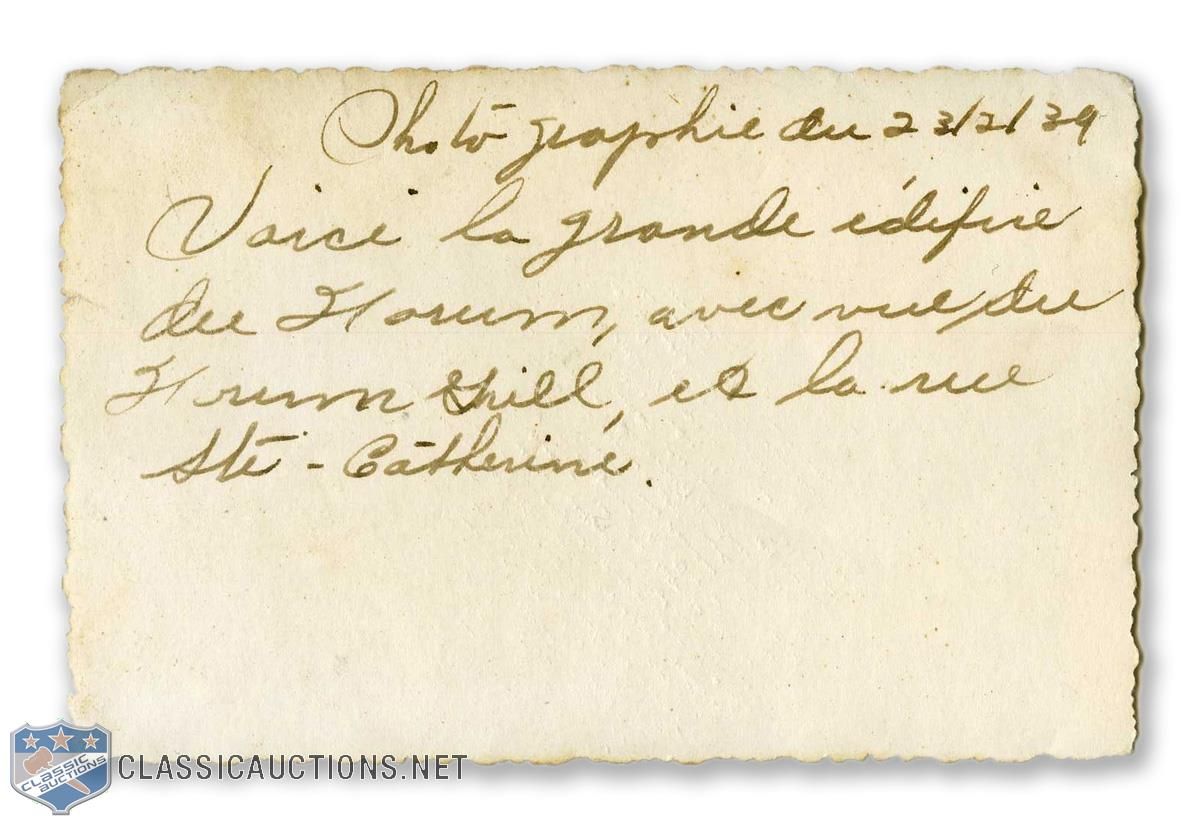 Photographie du 23/2/39
Voici la grande édifice
du Forum, avec vue du
Forum Grill, et la rue
Ste-Catherine.
CLASSIC AUCTIONS
CLASSICAUCTIONS.NET